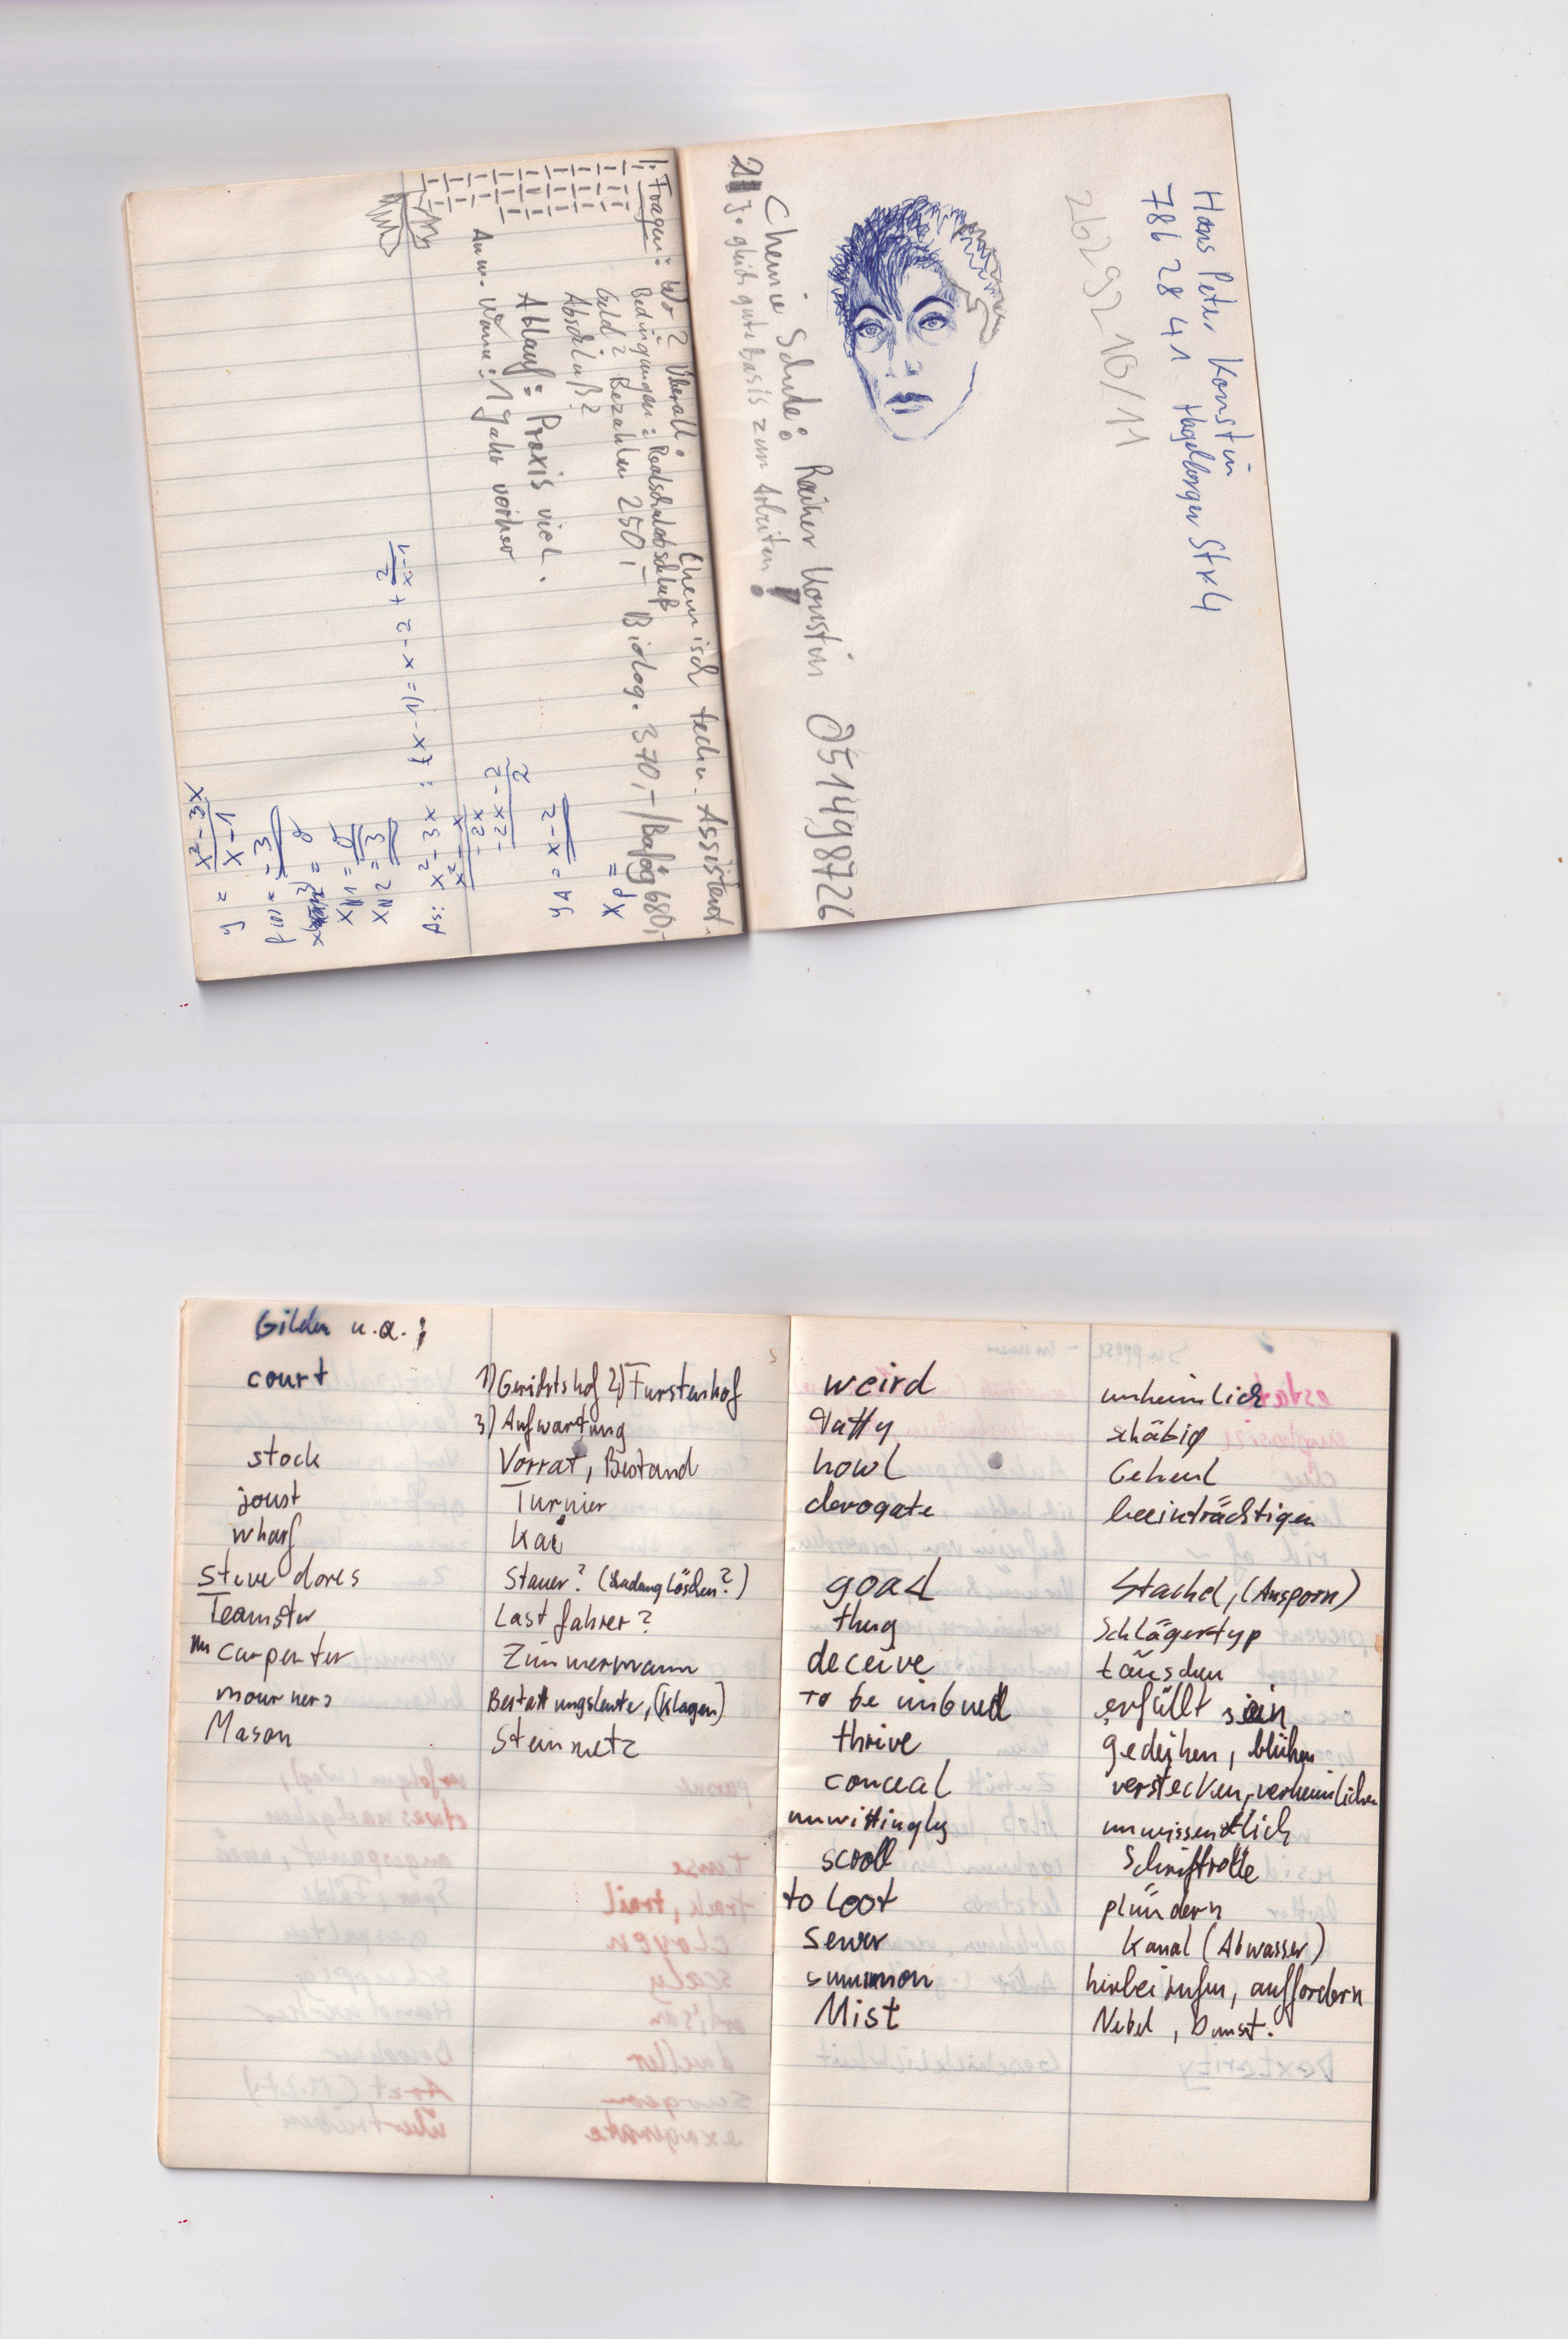 Hans Peter Konstin
786 28 41 Hagelberger Str 4
262 92 10/11
Chemie Schule: Rainer Konstin 05149 8726
2 J. gleich gute Basis zum Arbeiten!
Chemisch techn. Assistent.
1. Fragen: Wo? Überall.
Bedingungen: Realschulabschluß
Geld? Bezahlen 250,- Biolog. 370,-/Bafög 680,-
Abschluß?
Ablauf: Praxis viel.
Anm. Wann: 1 Jahr vorher
y = x²-3x / x-1
f(0) = -3
= 0
xN1 = 0
xN2 = 3
As: x²-3x : (x-1) = x-2 + 2/x-1
x²-x
-2x
-2x-2
2
yA = x-2
xp =
Gilden u.a.:
court 1) Gerichtshof 2) Fürstenhof
3) Aufwartung
stock Vorrat, Bestand
joust Turnier
wharf Kai
Stevedores Stauer? (Ladung Löschen?)
Teamster Lastfahrer?
carpenter Zimmermann
mourners Bestattungsleute, (klagen)
Mason Steinmetz
weird unheimlich
tatty schäbig
howl Geheul
derogate beeinträchtigen
goad Stachel, (Ansporn)
thug Schlägertyp
deceive täuschen
to be imbued erfüllt sein
thrive gedeihen, blühen
conceal verstecken, verheimlichen
unwittingly unwissentlich
scroll Schriftrolle
to loot plündern
sewer Kanal (Abwasser)
summon herbeirufen, auffordern
Mist Nebel, Dunst.